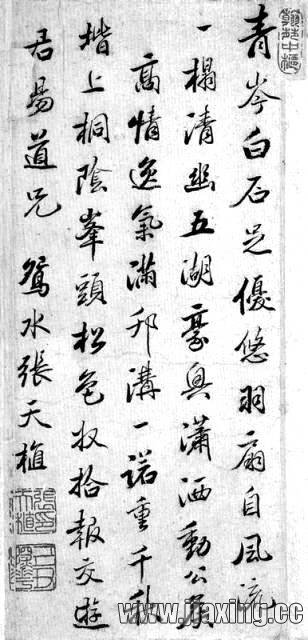 青岑白石足優悠羽扇自風流
一榻清幽五湖豪興瀟洒動公侯
高情逸氣滿邗溝一諾重千秋
堦上桐陰峯頭松色收拾報交遊
君易道兄 鴛水張天植
www.jiaxing.cc